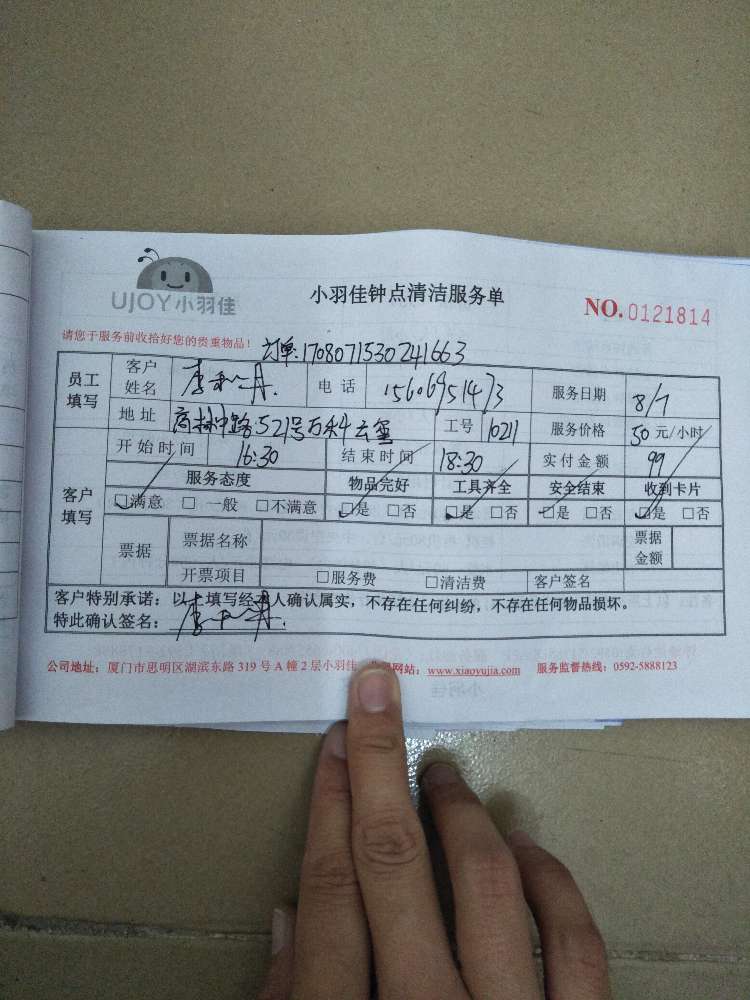 UJOY小羽佳
小羽佳钟点清洁服务单
NO.0121814
请您于服务前收拾好您的贵重物品！ 订单:1708071530241663
员工填写 客户姓名 李 丹. 电话 15606951473 服务日期 8/7
地址 高林中路:521号万科云玺 工号 10211 服务价格 50元/小时
客户填写 开始时间 16:30 结束时间 18:30 实付金额 99
服务态度 物品完好 工具齐全 安全结束 收到卡片
☑满意 □一般 □不满意 ☑是 □否 ☑是 □否 ☑是 □否 ☑是 □否
票据 票据名称 票据金额
开票项目 □服务费 □清洁费 客户签名
客户特别承诺：以上填写经本人确认属实，不存在任何纠纷，不存在任何物品损坏。
特此确认签名： 李 丹.
公司地址：厦门市思明区湖滨东路 319 号 A 幢 2 层小羽佳 网站：www.xiaoyujia.com 服务监督热线：0592-5888123